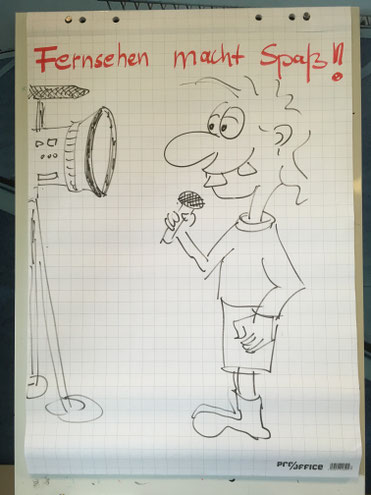 Fernsehen macht Spaß!!
PRO/OFFICE